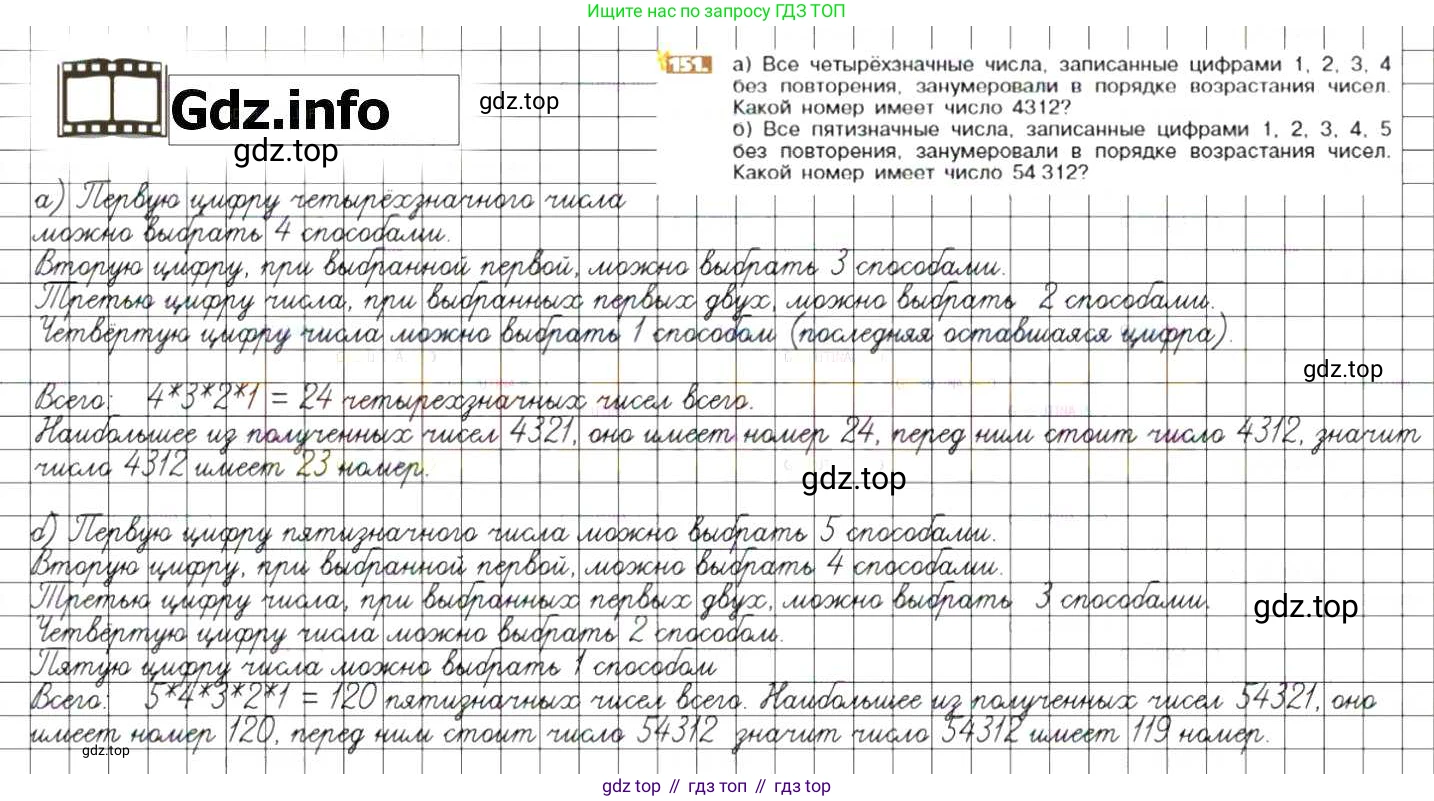 Ищите нас по запросу ГДЗ ТОП
Gdz.info
gdz.top
gdz.top
151. а) Все четырёхзначные числа, записанные цифрами 1, 2, 3, 4
без повторения, занумеровали в порядке возрастания чисел.
Какой номер имеет число 4312?
б) Все пятизначные числа, записанные цифрами 1, 2, 3, 4, 5
без повторения, занумеровали в порядке возрастания чисел.
Какой номер имеет число 54 312?
а) Первую цифру четырёхзначного числа
можно выбрать 4 способами.
Вторую цифру, при выбранной первой, можно выбрать 3 способами.
Третью цифру числа, при выбранных первых двух, можно выбрать 2 способами.
Четвёртую цифру числа можно выбрать 1 способом (последняя оставшаяся цифра).
gdz.top
Всего: 4*3*2*1 = 24 четырехзначных чисел всего.
Наибольшее из полученных чисел 4321, оно имеет номер 24, перед ним стоит число 4312, значит
число 4312 имеет 23 номер.
gdz.top
б) Первую цифру пятизначного числа можно выбрать 5 способами.
Вторую цифру, при выбранной первой, можно выбрать 4 способами.
Третью цифру числа, при выбранных первых двух, можно выбрать 3 способами.
gdz.top
Четвёртую цифру числа можно выбрать 2 способом.
Пятую цифру числа можно выбрать 1 способом
Всего: 5*4*3*2*1 = 120 пятизначных чисел всего. Наибольшее из полученных чисел 54321, оно
имеет номер 120, перед ним стоит число 54312 значит число 54312 имеет 119 номер.
gdz.top
gdz top // гдз топ // гдз top